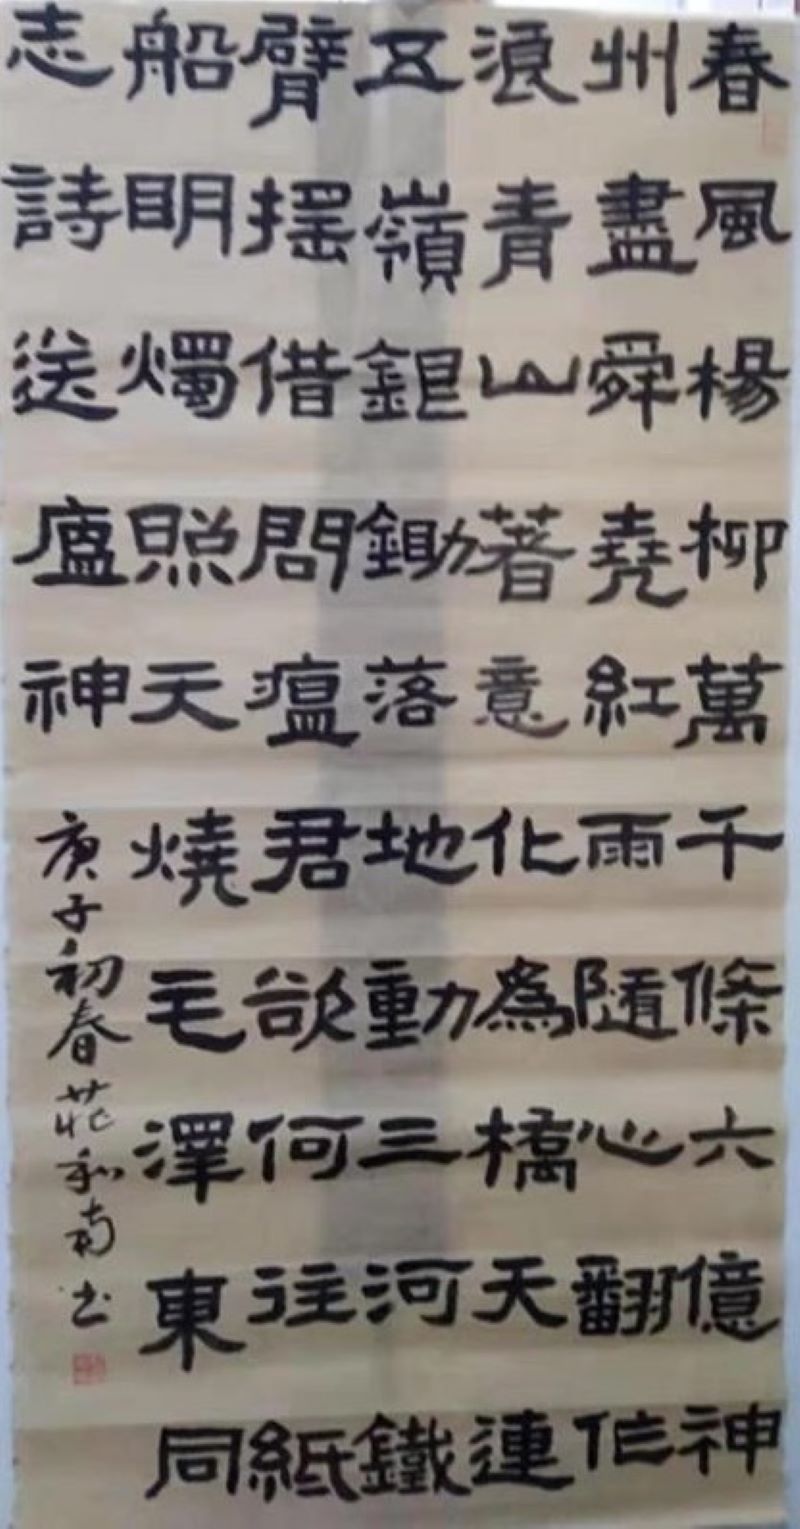 春風楊柳萬千條六億神
州盡舜堯紅雨隨心翻作
浪青山著意化為橋天連
五嶺銀鋤落地動三河鐵
臂搖借問瘟君欲何往紙
船明燭照天燒毛澤東同
志詩送瘟神
庚子初春莊和南书